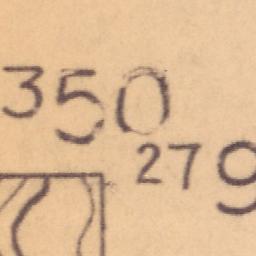 350
279